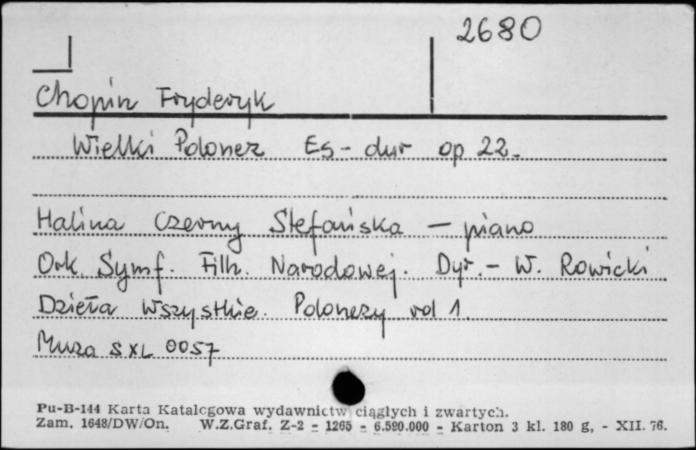 2680
Chopin Fryderyk
Wielki Polonez Es-dur op 22.
Halina Czerny Stefańska — piano
Ork. Symf. Filh. Narodowej. Dyr.- W. Rowicki
Dzieła Wszystkie. Polonezy vol 1.
Muza SXL 0057
Pu-B-144 Karta Katalogowa wydawnictw ciągłych i zwartych.
Zam. 1648/DW/On. W.Z.Graf. Z-2 - 1265 - 6.590.000 - Karton 3 kl. 180 g, - XII. 76.